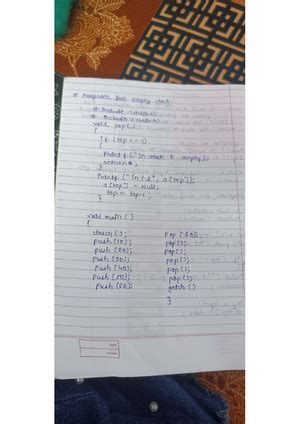 # Program for empty stack.
# include <stdio.h>
# include <conio.h>
void pop()
{
if (top == -1)
{
Printf ("\n stack is empty");
return;
}
Printf ("\n %d", a[top]);
a[top] = NULL;
top = top-1;
}
void main ()
{
clrscr ();
push (10);
push (20);
push (30);
push (40);
push (50);
push (60);
pop (60);
pop ();
pop ();
pop ();
pop ();
pop ();
getch ()
}